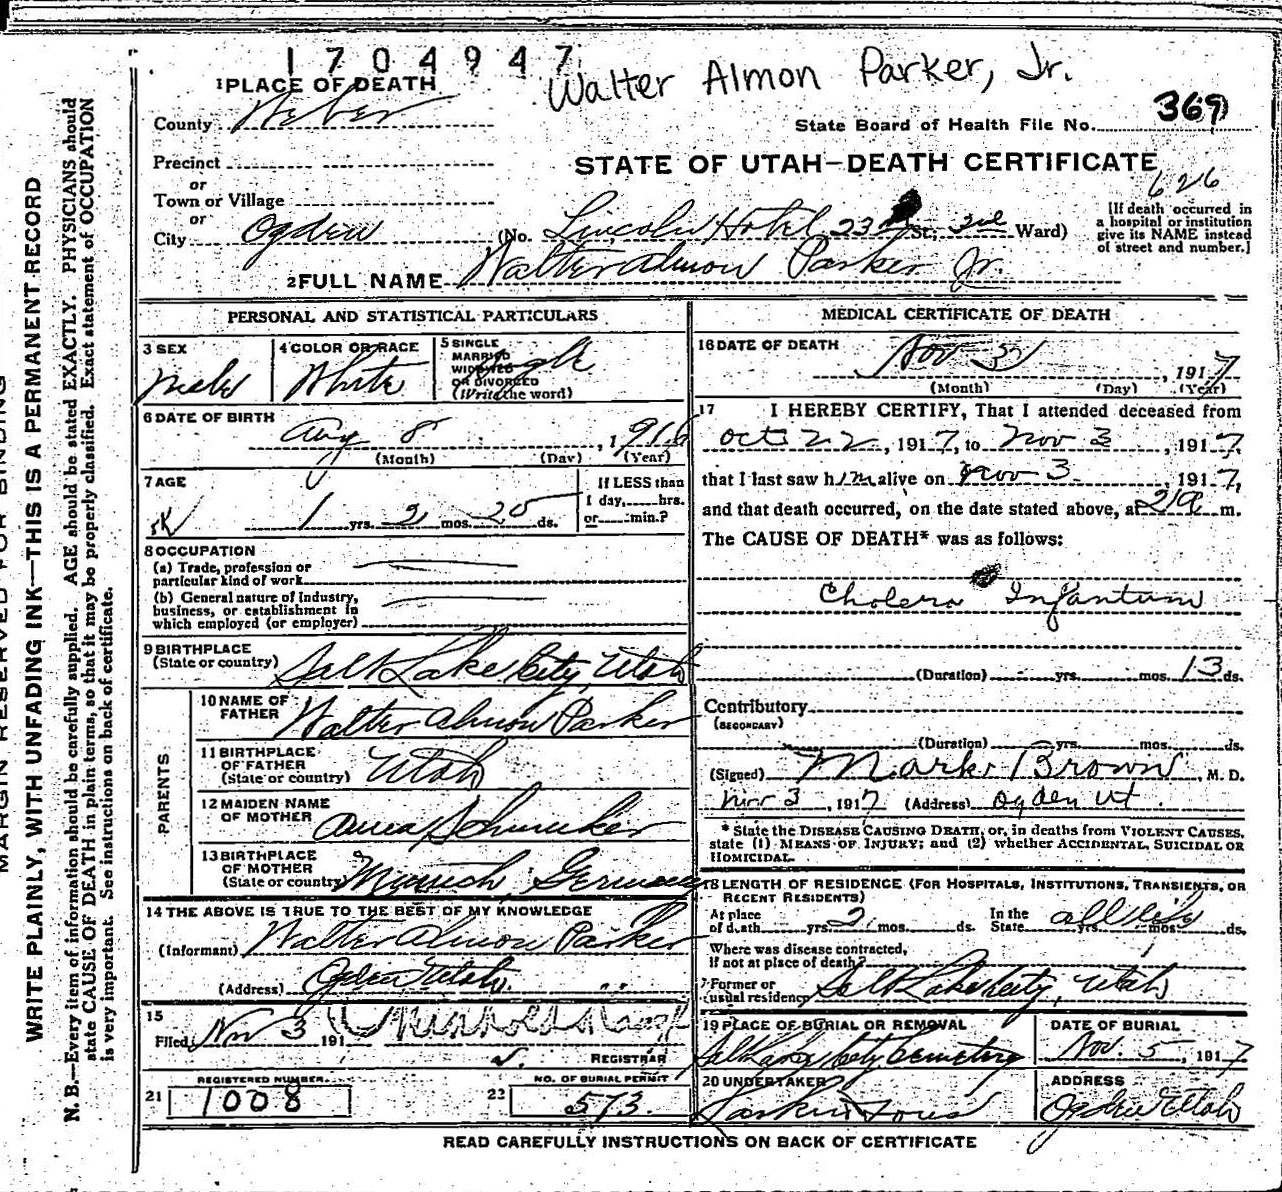 1704947
Walter Almon Parker, Jr.
1 PLACE OF DEATH
County Weber
State Board of Health File No. 369
Precinct
STATE OF UTAH—DEATH CERTIFICATE
or
Town or Village
626
or
City Ogden (No. Lincoln Hotel 23rd St; 3rd Ward)
[If death occurred in
a hospital or institution
give its NAME instead
of street and number.]
2 FULL NAME Walter Almon Parker Jr.
PERSONAL AND STATISTICAL PARTICULARS
3 SEX
Male
4 COLOR OR RACE
White
5 SINGLE
MARRIED
WIDOWED
OR DIVORCED
(Write the word)
Single
6 DATE OF BIRTH
Aug 8, 1916
(Month) (Day) (Year)
7 AGE
1 yrs. 2 mos. 25 ds.
If LESS than
1 day, hrs.
or min.?
8 OCCUPATION
(a) Trade, profession or
particular kind of work
(b) General nature of Industry,
business, or establishment in
which employed (or employer)
9 BIRTHPLACE
(State or country) Salt Lake City, Utah
PARENTS
10 NAME OF
FATHER Walter Almon Parker
11 BIRTHPLACE
OF FATHER
(State or country) Utah
12 MAIDEN NAME
OF MOTHER Anna Schmucker
13 BIRTHPLACE
OF MOTHER
(State or country) Munich, Germany
14 THE ABOVE IS TRUE TO THE BEST OF MY KNOWLEDGE
(Informant) Walter Almon Parker
(Address) Ogden Utah.
15
Filed Nov 3 191
REGISTRAR
21 REGISTERED NUMBER
1008
22 NO. OF BURIAL PERMIT
573.
MEDICAL CERTIFICATE OF DEATH
16 DATE OF DEATH
Nov 3, 1917
(Month) (Day) (Year)
17 I HEREBY CERTIFY, That I attended deceased from
Oct 22, 1917, to Nov 3, 1917.
that I last saw him alive on Nov 3, 1917,
and that death occurred, on the date stated above, at m.
The CAUSE OF DEATH* was as follows:
Cholera Infantum
(Duration) yrs. mos. 13 ds.
Contributory
(SECONDARY)
(Duration) yrs. mos. ds.
(Signed) Mark Brown, M. D.
Nov 3, 1917 (Address) Ogden Ut.
* State the DISEASE CAUSING DEATH, or, in deaths from VIOLENT CAUSES,
state (1) MEANS OF INJURY; and (2) whether ACCIDENTAL, SUICIDAL OR
HOMICIDAL.
18 LENGTH OF RESIDENCE (FOR HOSPITALS, INSTITUTIONS, TRANSIENTS, OR
RECENT RESIDENTS)
At place
of death yrs. 2 mos. ds.
In the
State all life yrs. mos. ds.
Where was disease contracted,
If not at place of death?
Former or
usual residence Salt Lake City, Utah
19 PLACE OF BURIAL OR REMOVAL
Salt Lake City Cemetery
DATE OF BURIAL
Nov. 5, 1917
20 UNDERTAKER
Larkin & Sons
ADDRESS
Ogden Utah
READ CAREFULLY INSTRUCTIONS ON BACK OF CERTIFICATE
MARGIN RESERVED FOR BINDING
WRITE PLAINLY, WITH UNFADING INK—THIS IS A PERMANENT RECORD
N. B.—Every item of information should be carefully supplied. AGE should be stated EXACTLY. PHYSICIANS should
state CAUSE OF DEATH in plain terms, so that it may be properly classified. Exact statement of OCCUPATION
is very important. See instructions on back of certificate.